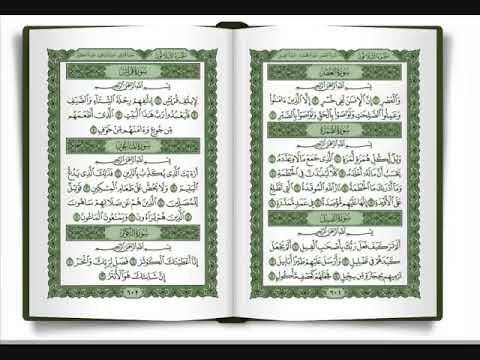 الجزء الثلاثون
سُورَةُ العَصْرِ
بِسْمِ اللَّهِ الرَّحْمَٰنِ الرَّحِيمِ
وَالْعَصْرِ ١ إِنَّ الْإِنسَٰنَ لَفِي خُسْرٍ ٢ إِلَّا الَّذِينَ ءَامَنُوا
وَعَمِلُوا الصَّٰلِحَٰتِ وَتَوَاصَوْا بِالْحَقِّ وَتَوَاصَوْا بِالصَّبْرِ ٣
سُورَةُ الهُمَزَةِ
بِسْمِ اللَّهِ الرَّحْمَٰنِ الرَّحِيمِ
وَيْلٌ لِّكُلِّ هُمَزَةٍ لُّمَزَةٍ ١ الَّذِي جَمَعَ مَالًا وَعَدَّدَهُ ٢
يَحْسَبُ أَنَّ مَالَهُ أَخْلَدَهُ ٣ كَلَّا لَيُنبَذَنَّ فِي الْحُطَمَةِ ٤
وَمَا أَدْرَىٰكَ مَا الْحُطَمَةُ ٥ نَارُ اللَّهِ الْمُوقَدَةُ ٦ الَّتِي تَطَّلِعُ
عَلَى الْأَفْـِٔدَةِ ٧ إِنَّهَا عَلَيْهِم مُّؤْصَدَةٌ ٨ فِي عَمَدٍ مُّمَدَّدَةٍ ٩
سُورَةُ الفِيلِ
بِسْمِ اللَّهِ الرَّحْمَٰنِ الرَّحِيمِ
أَلَمْ تَرَ كَيْفَ فَعَلَ رَبُّكَ بِأَصْحَٰبِ الْفِيلِ ١ أَلَمْ يَجْعَلْ
كَيْدَهُمْ فِي تَضْلِيلٍ ٢ وَأَرْسَلَ عَلَيْهِمْ طَيْرًا أَبَابِيلَ ٣
تَرْمِيهِم بِحِجَارَةٍ مِّن سِجِّيلٍ ٤ فَجَعَلَهُمْ كَعَصْفٍ مَّأْكُولٍ ٥
٦٠١
سُورَةُ قُرَيْشٍ
بِسْمِ اللَّهِ الرَّحْمَٰنِ الرَّحِيمِ
لِإِيلَٰفِ قُرَيْشٍ ١ إِۦلَٰفِهِمْ رِحْلَةَ الشِّتَاءِ وَالصَّيْفِ ٢
فَلْيَعْبُدُوا رَبَّ هَٰذَا الْبَيْتِ ٣ الَّذِي أَطْعَمَهُم
مِّن جُوعٍ وَءَامَنَهُم مِّنْ خَوْفٍ ٤
سُورَةُ المَاعُونِ
بِسْمِ اللَّهِ الرَّحْمَٰنِ الرَّحِيمِ
أَرَءَيْتَ الَّذِي يُكَذِّبُ بِالدِّينِ ١ فَذَٰلِكَ الَّذِي يَدُعُّ
الْيَتِيمَ ٢ وَلَا يَحُضُّ عَلَىٰ طَعَامِ الْمِسْكِينِ ٣ فَوَيْلٌ
لِّلْمُصَلِّينَ ٤ الَّذِينَ هُمْ عَن صَلَاتِهِمْ سَاهُونَ ٥
الَّذِينَ هُمْ يُرَاءُونَ ٦ وَيَمْنَعُونَ الْمَاعُونَ ٧
سُورَةُ الكَوْثَرِ
بِسْمِ اللَّهِ الرَّحْمَٰنِ الرَّحِيمِ
إِنَّا أَعْطَيْنَٰكَ الْكَوْثَرَ ١ فَصَلِّ لِرَبِّكَ وَانْحَرْ ٢
إِنَّ شَانِئَكَ هُوَ الْأَبْتَرُ ٣
٦٠٢